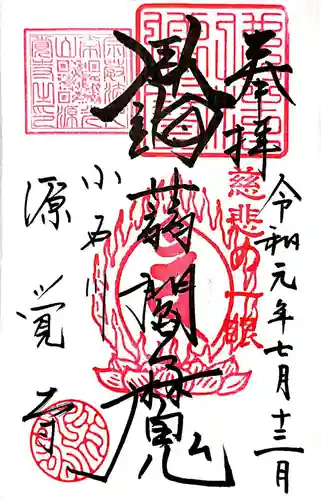 奉拝
令和元年七月十三日
慈悲の一眼
蒟蒻閻魔
小石川
源覚寺